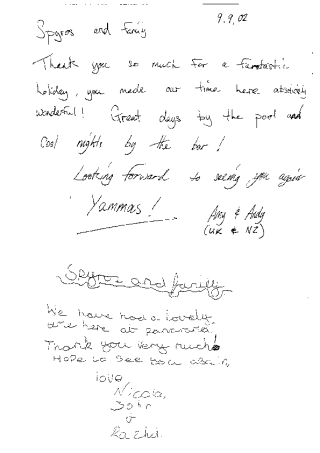 9.9.02
Spyros and family
Thank you so much for a fantastic
holiday, you made our time here absolutely
wonderful! Great days by the pool and
Cool nights by the bar!
Looking forward to seeing you again
Yammas!
Amy & Andy
(UK & NZ)
Spyros and family
We have had a lovely
here at panorama.
Thank you very much!
Hope to see you again,
love
Nicola,
John
&
Rachel.